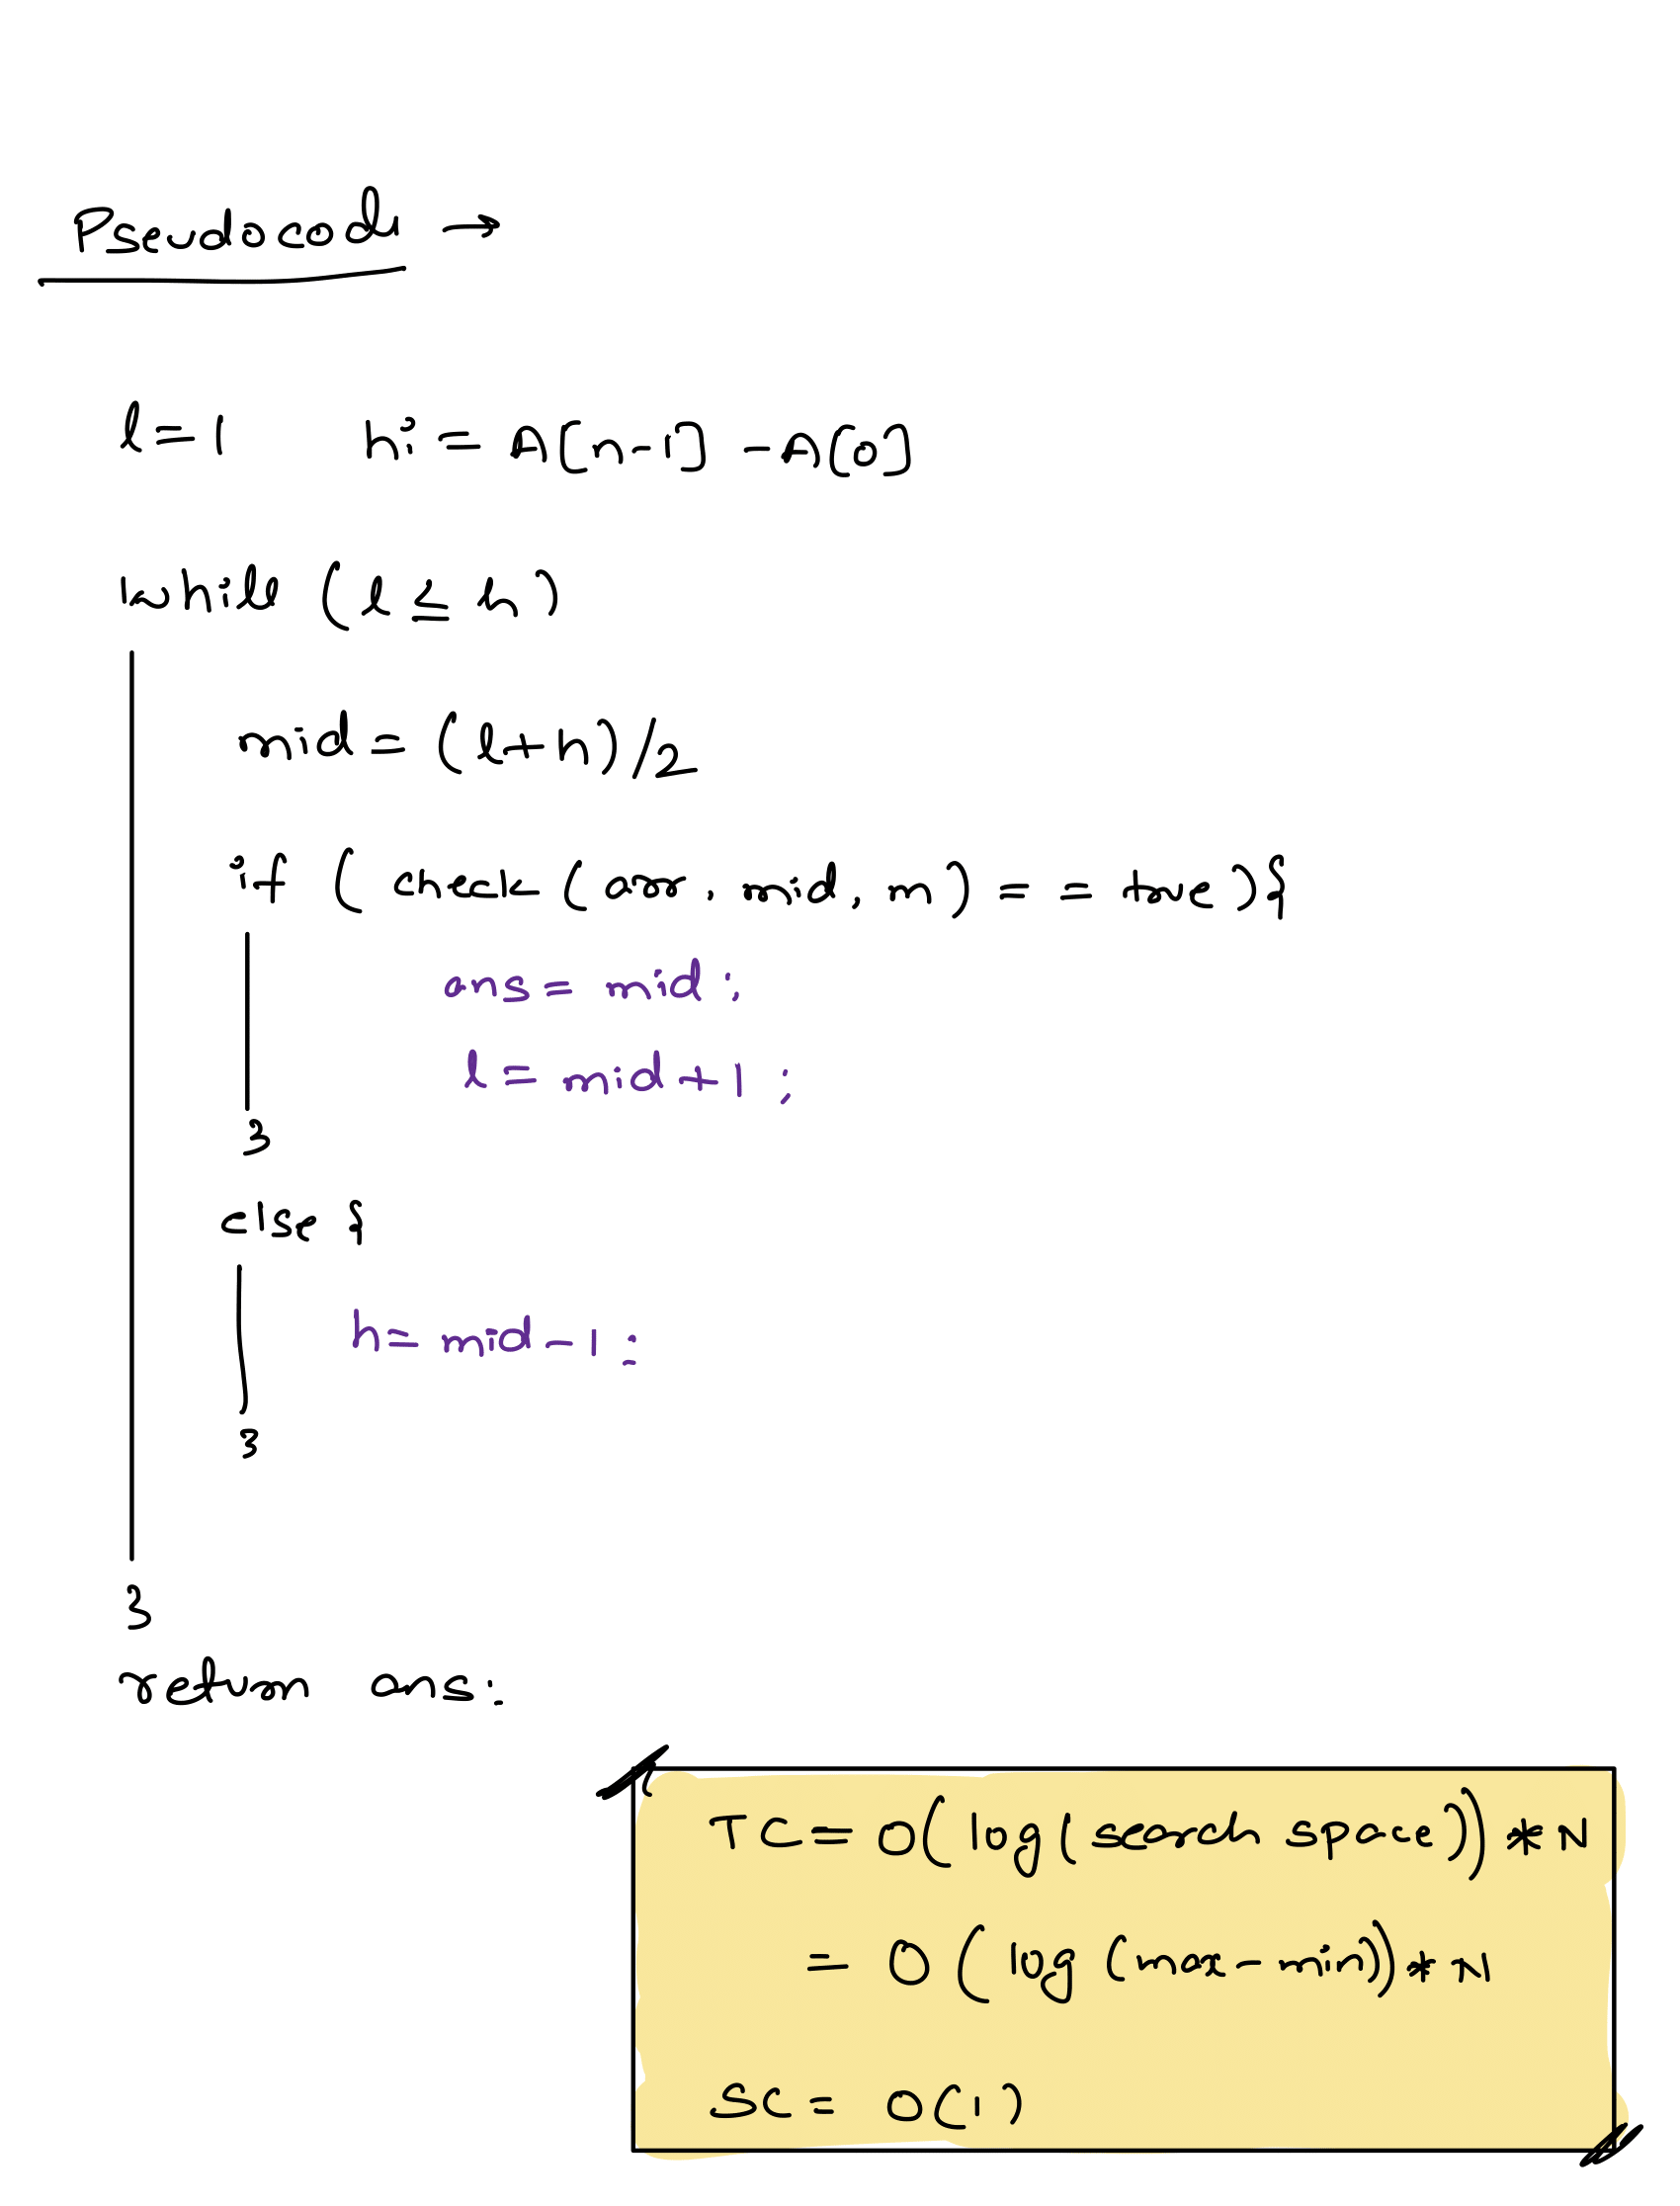 Pseudocode →
l = 1 hi = A[n-1] - A[0]
while (l ≤ h)
mid = (l+h)/2
if ( check (arr, mid, m) == true){
ans = mid;
l = mid+1 ;
}
else {
h = mid-1;
}
}
return ans;
TC = O(log(search space)) * N
= O(log (max-min)) * N
SC = O(1)